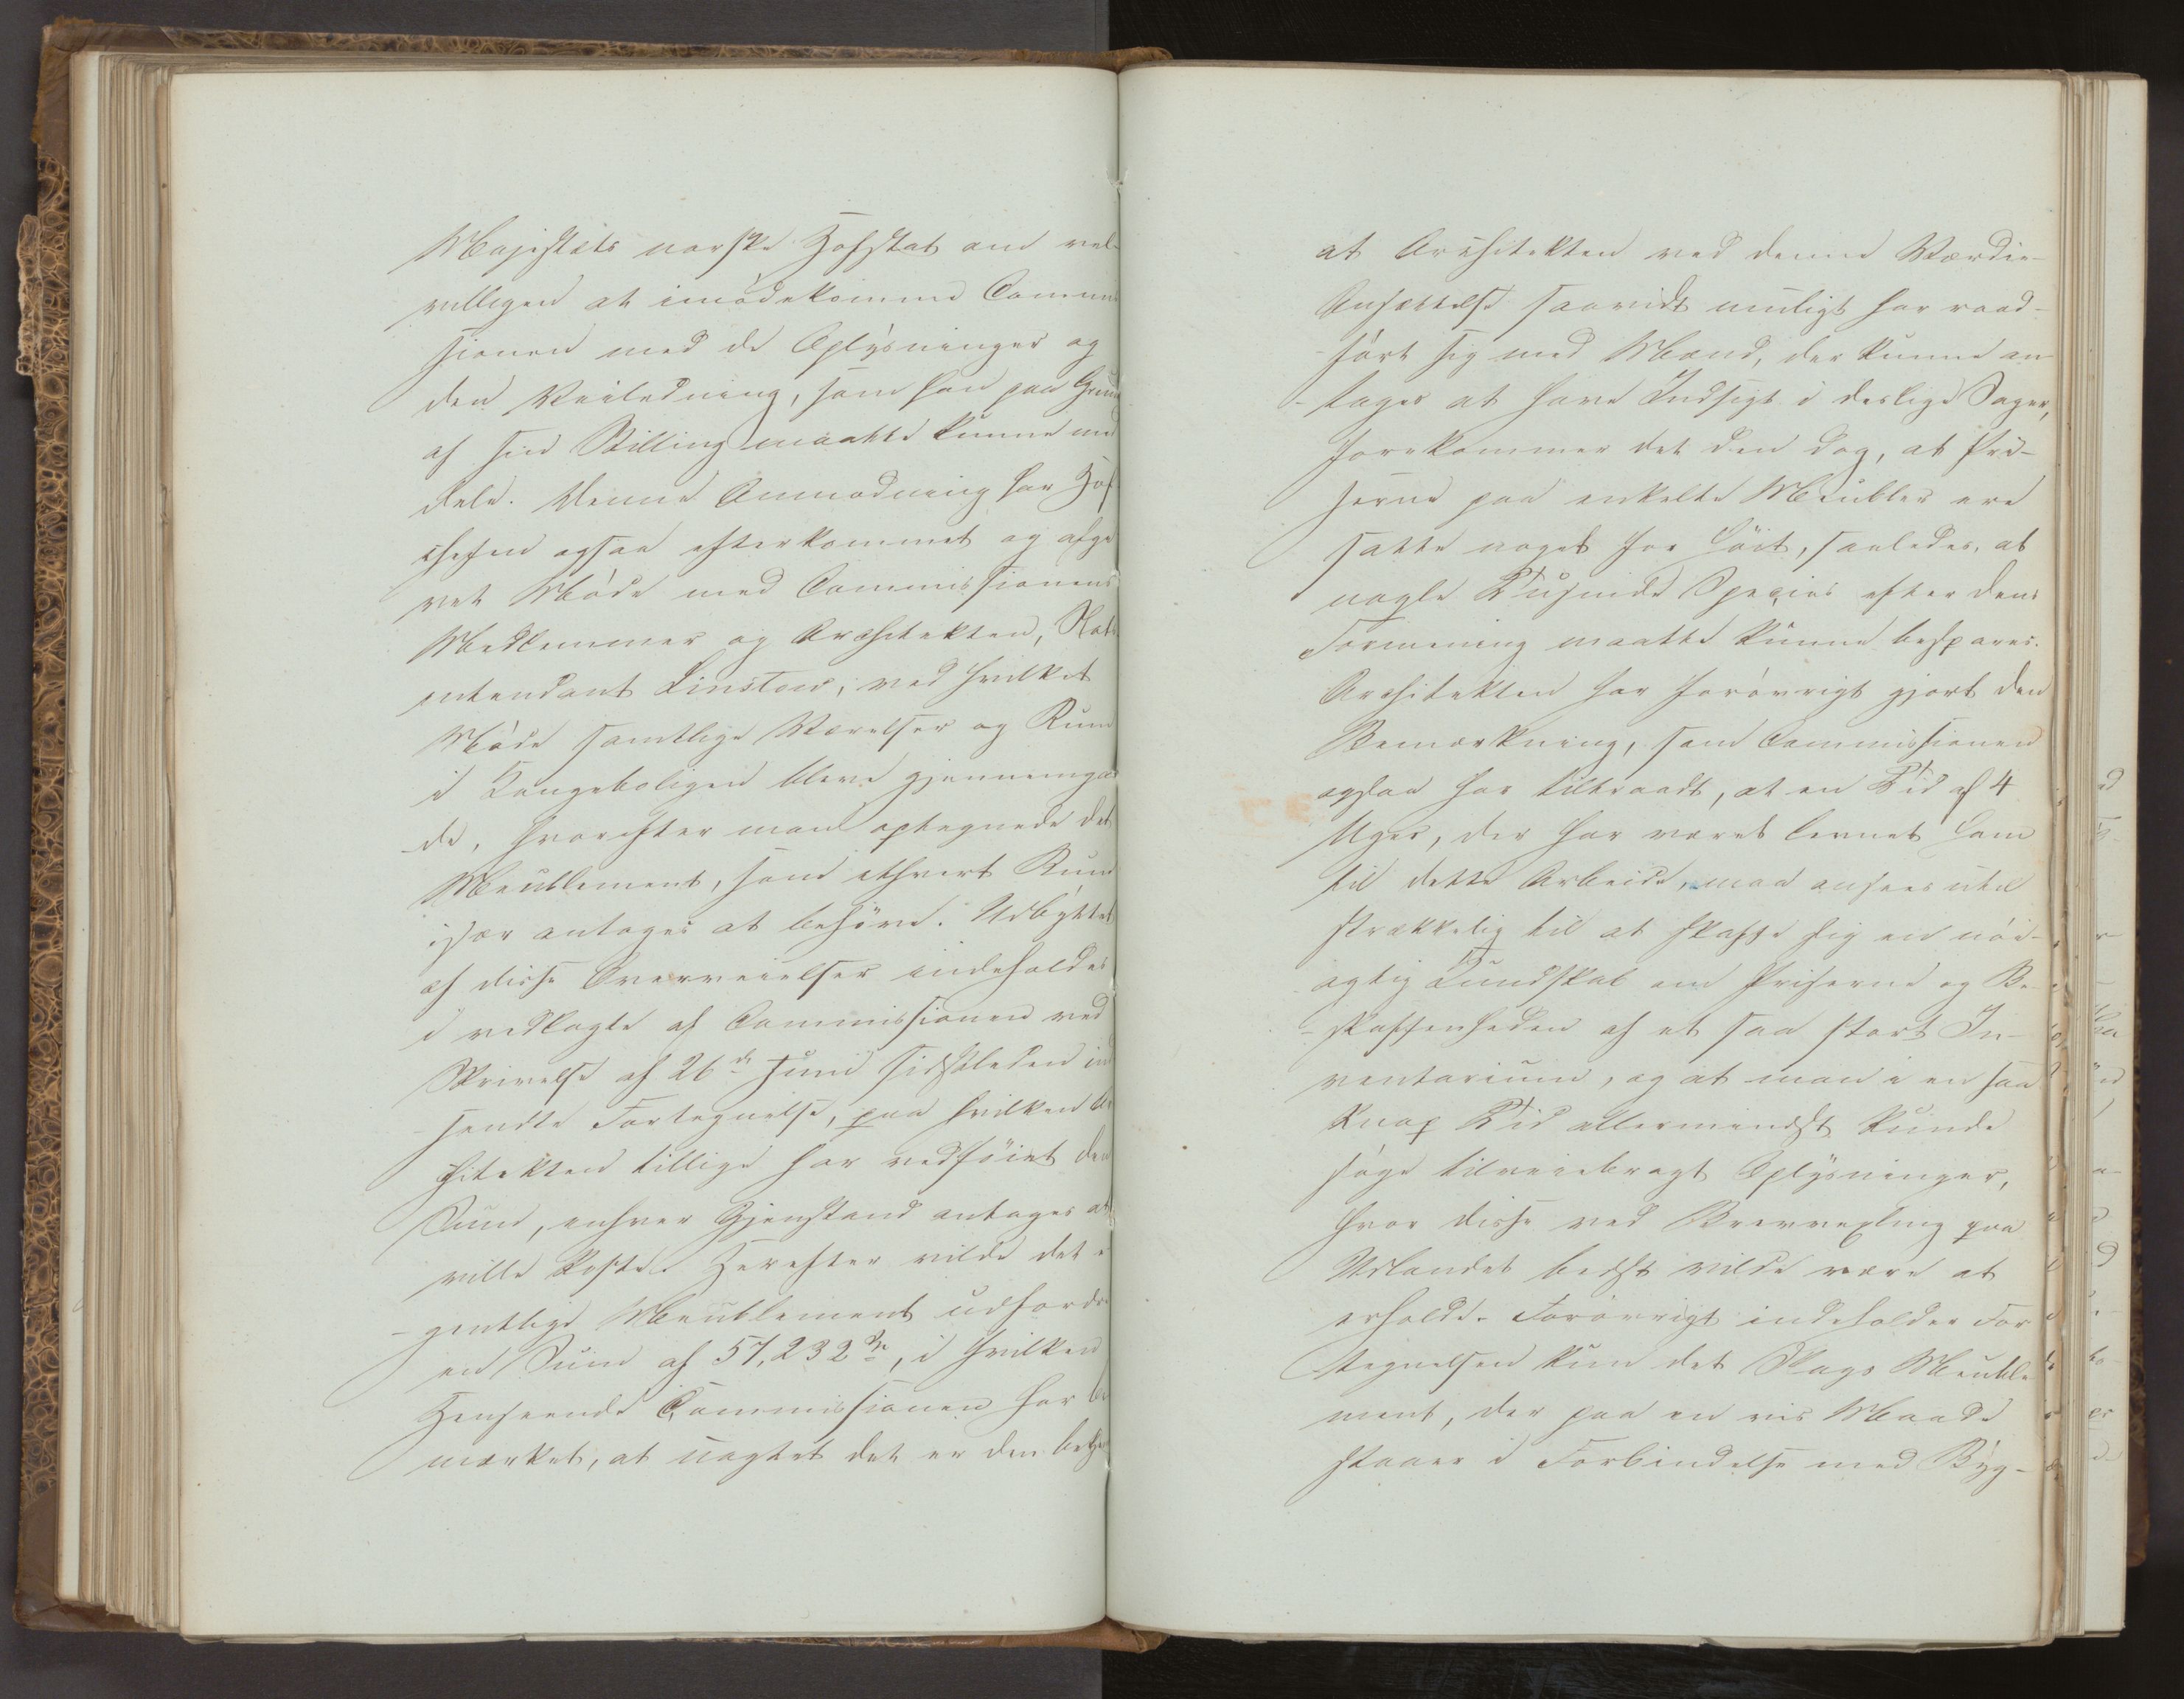 Majestæts norske Hofstat om vel-
villigen at imödekomme Commis
sionen med de Oplysninger og
den Veiledning, som han paa Grund
af sin Stilling maatte kunne med
dele. Denne Anmodning har Hof
chefen ogsaa efterkommet og afgi
vet Möde med Commissionens
Medlemmer og Architekten, Slots
intendant Linstow, ved hvilket
Möde samtlige Værelser og Rum
i Kongeboligen bleve gjennemgaae
de, hvorefter man optegnede det
Meublement, som ethvert Rum
især antages at behöve. Udbyttet
af disse Overveielser indeholdes
i vedlagte af Commissionen ved
Skrivelse af 26de Juni sidstleden ind
sendte Fortegnelse, paa hvilken Ar
chitekten tillige har vedföiet den
Sum, enhver Gjenstand antages at
ville koste. Herefter vilde det e
gentlige Meublement udfordre
en Sum af 57,232 Sp, i hvilken
Henseende Commissionen har be
mærket, at uagtet det er den bekjendt
at Architekten ved denne Værdie-
Ansættelse saavidt muligt har raad-
fört sig med Mænd, der kunne an-
tages at have Indsigt i deslige Sager,
forekommer det den dog, at Pri-
serne paa enkelte Meubler ere
satte noget for höit, saaledes, at
nogle Tusinde Species efter dens
Formening maatte kunne bespares.
Architekten har forövrigt gjort den
Bemærkning, som Commissionen
ogsaa har tiltraadt, at en Tid af 4
Uger, der har været levnet ham
til dette Arbeide, maa ansees util
strækkelig til at skaffe sig en nöi-
agtig Kundskab om Priserne og Be-
skaffenheden af et saa stort In-
ventarium, og at man i en saa
knap Tid allermindst kunde
söge tilveiebragt Oplysninger,
hvor disse ved Brevvexling paa
Udlandet bedst vilde være at
erholde. Forövrigt indeholder For
tegnelsen kun det Slags Meuble
ment, der paa en vis Maade
staaer i Forbindelse med Byg-